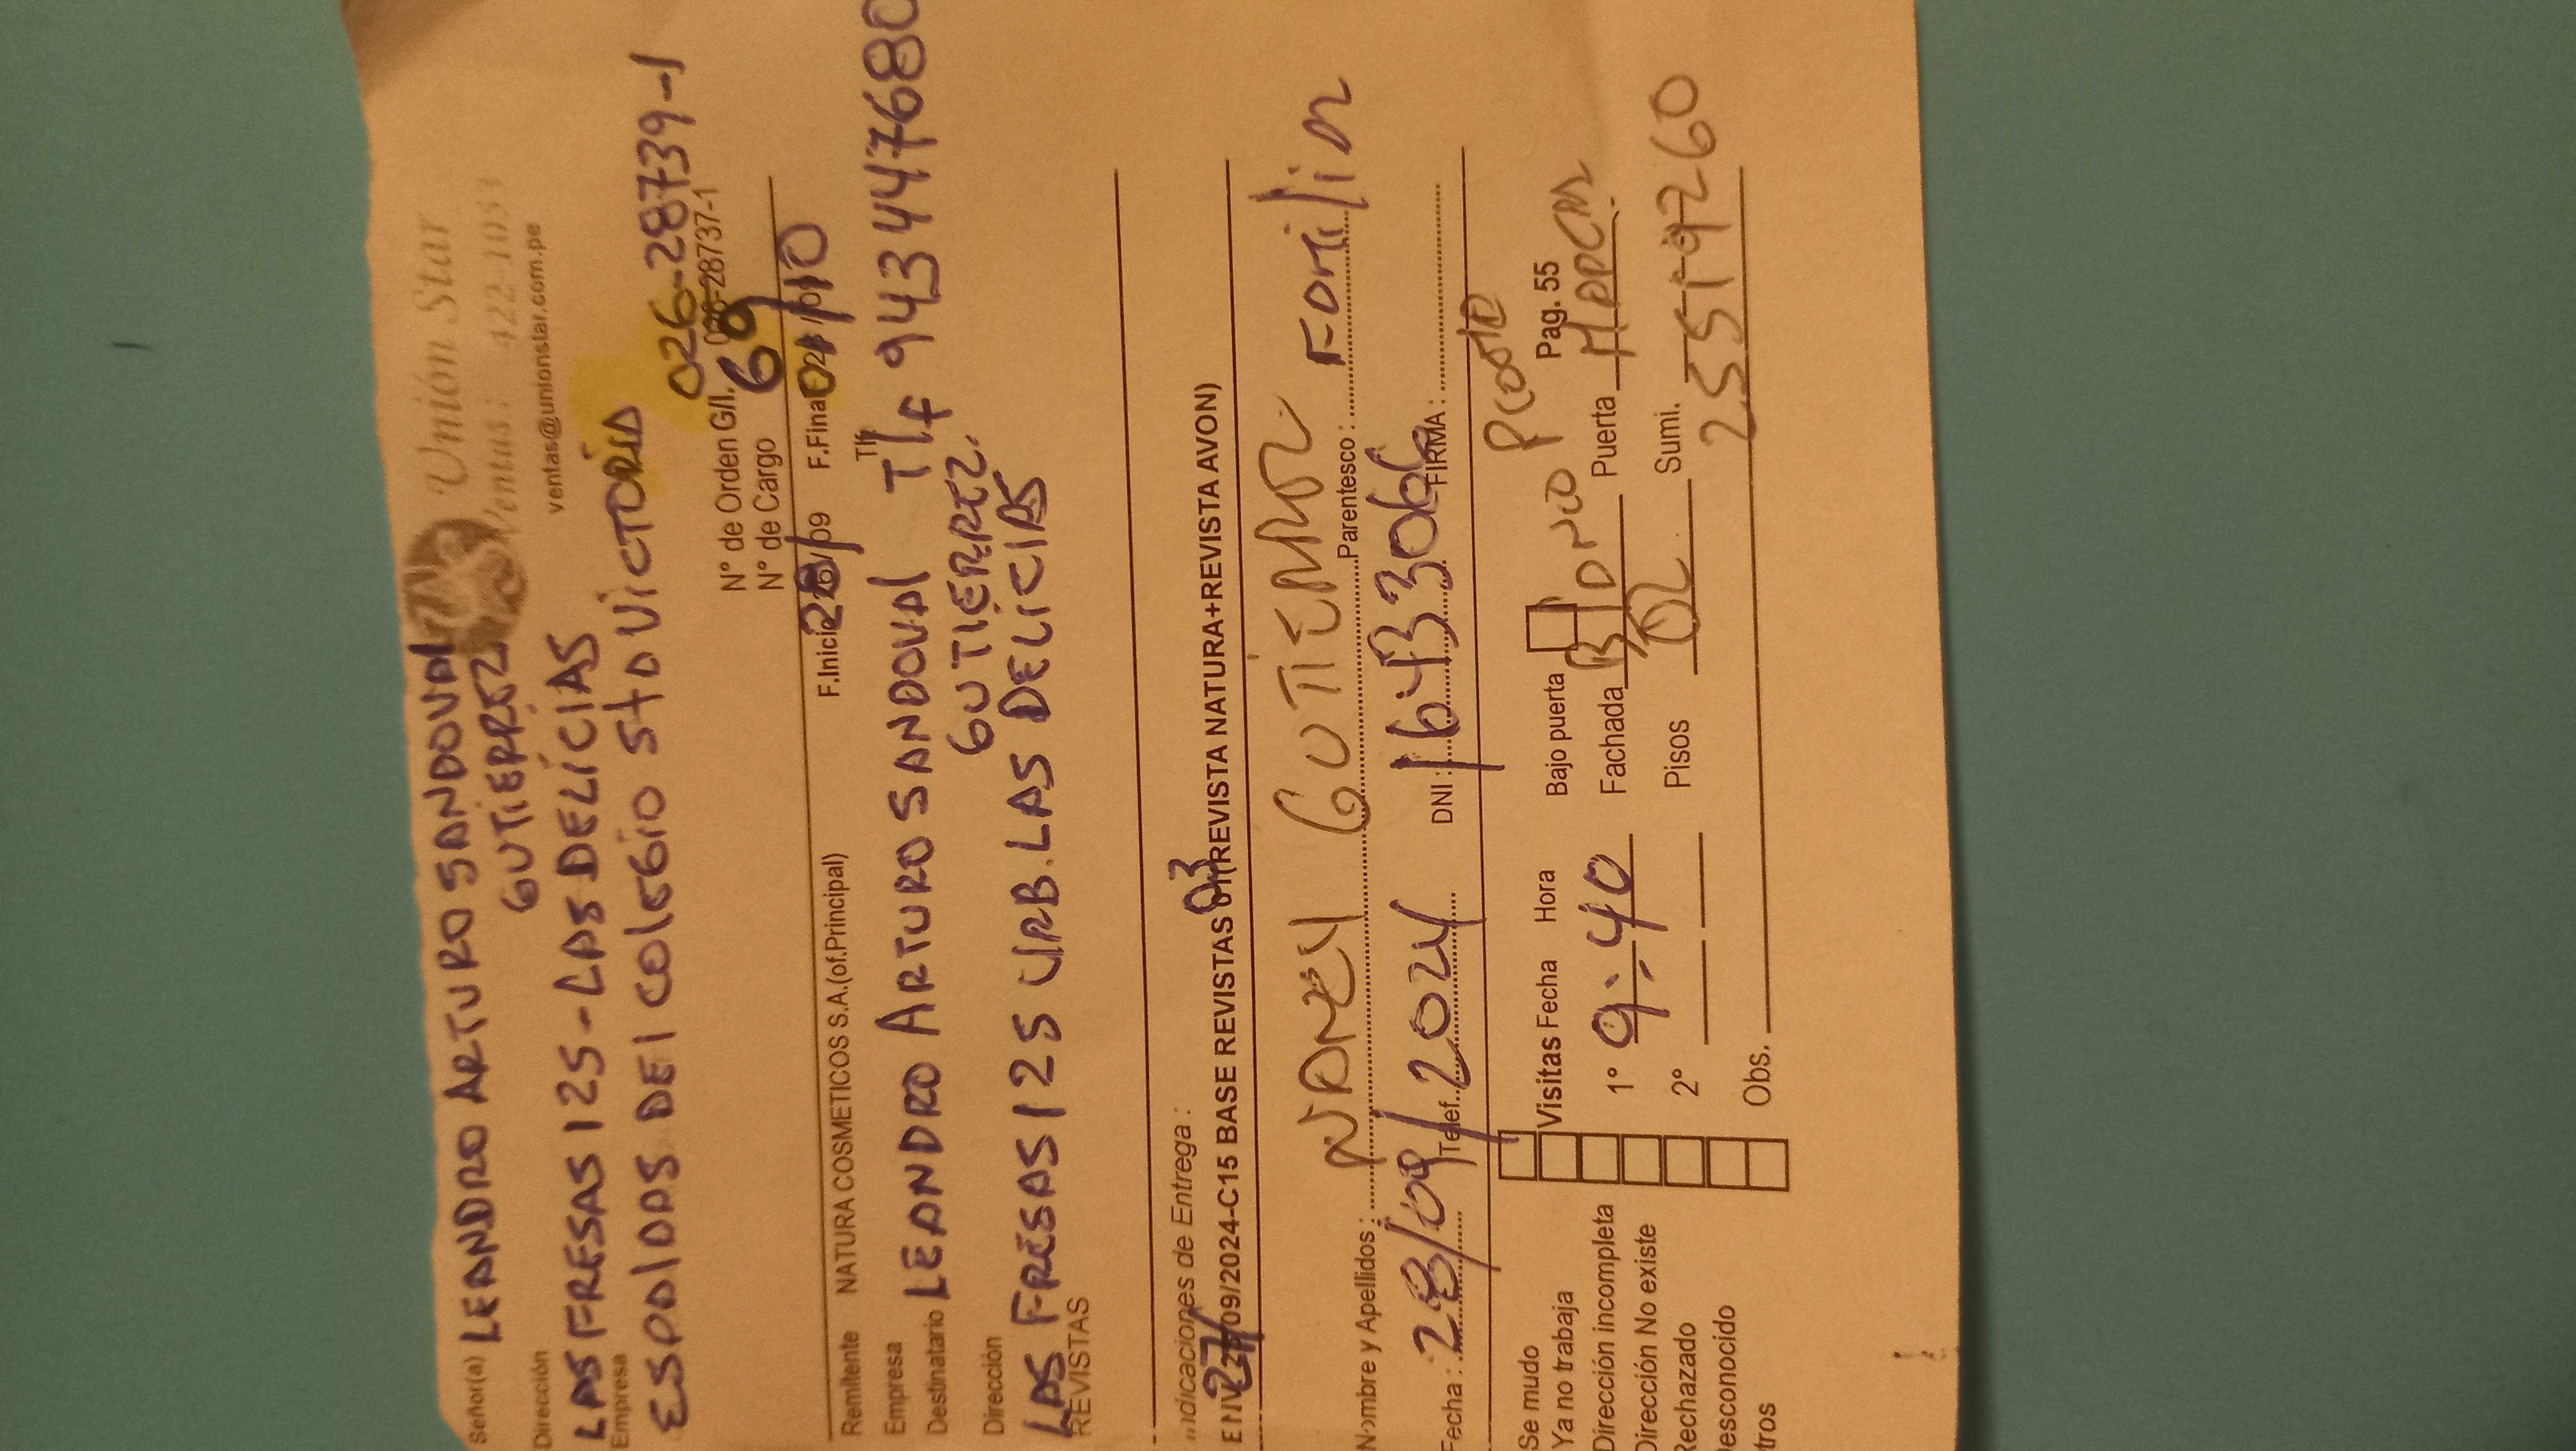 Unión Star
Ventas : 422-1053
ventas@unionstar.com.pe
Señor(a) LEANDRO ARTURO SANDOVAL
GUTIERREZ
Dirección
LAS FRESAS 125 - LAS DELICIAS
Empresa
ESPALDAS DEL COLEGIO Sta VICTORIA
026-28739-1
N° de Orden G/I. 026-28737-1
N° de Cargo 69
F.Inicio 28/09 F.Final 02/10
Remitente NATURA COSMETICOS S.A.(of.Principal)
Empresa
Tlf
Destinatario LEANDRO ARTURO SANDOVAL Tlf 943447680
GUTIERREZ.
Dirección
LAS FRESAS 125 URB. LAS DELICIAS
REVISTAS
Indicaciones de Entrega :
ENV 27/09/2024-C15 BASE REVISTAS 03 (REVISTA NATURA+REVISTA AVON)
Nombre y Apellidos : NANCY GUTIERREZ Parentesco :
Fecha : 28/09/2024 Telef. DNI : 16433066 FIRMA :
Se mudo
Ya no trabaja
Dirección incompleta
Dirección No existe
Rechazado
Desconocido
tros
Visitas Fecha Hora
1° 9:40
2°
Obs.
Bajo puerta Pag. 55
Fachada Puerta
Pisos 02 Sumi.
25519260